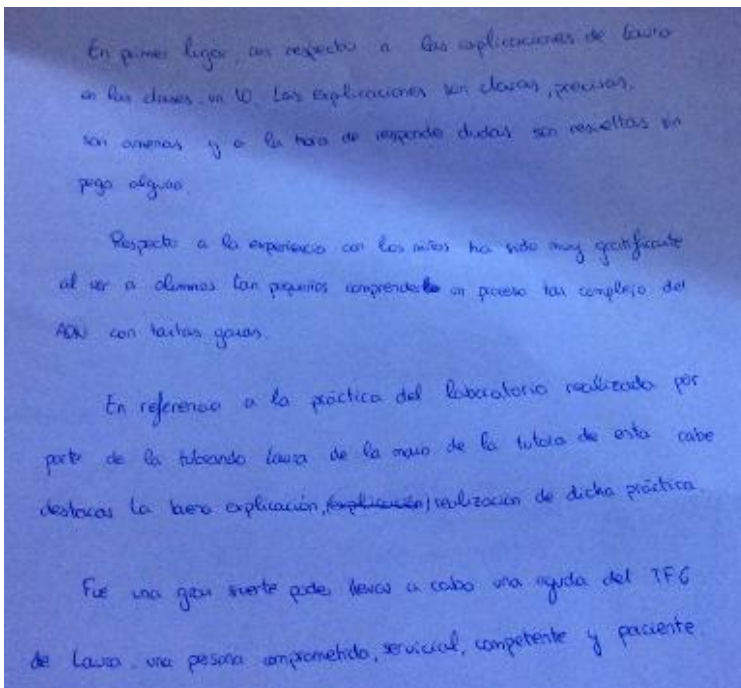 En primer lugar, con respecto a las explicaciones de Laura
en las clases, un 10. Las explicaciones son claras, precisas,
son amenas y a la hora de responder dudas son resueltas sin
pego alguno.
Respecto a la experiencia con los niños ha sido muy gratificante
al ver a alumnos tan pequeños comprender un proceso tan complejo del
ADN con tantas ganas.
En referencia a la práctica del laboratorio realizada por
parte de la tutorando Laura de la mano de la tutora de esta cabe
destacar la buena explicación, (explicación) realización de dicha práctica.
Fue una gran suerte poder llevar a cabo una ayuda del TFG
de Laura, una persona comprometida, servicial, competente y paciente.